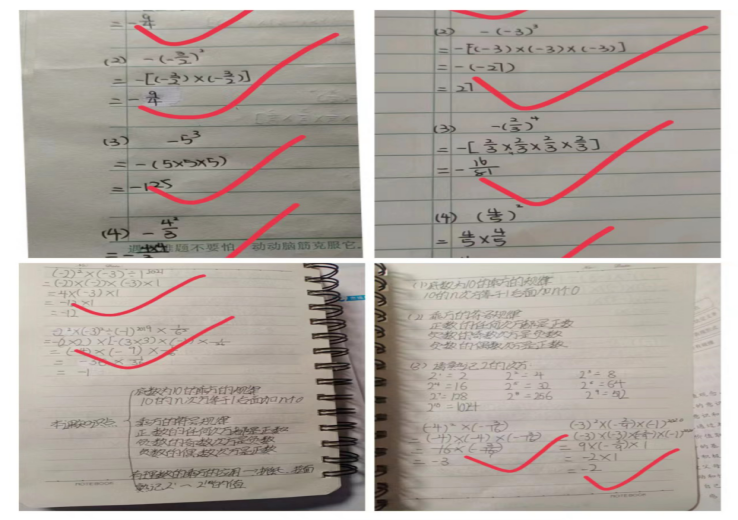 = -9/4
(2) -(-3/2)²
= -[(-3/2)×(-3/2)]
= -9/4
(3) -5³
= -(5×5×5)
= -125
(4) -4²/3
难题不要怕 动动脑筋克服它
(2) -(-3)³
= -[(-3)×(-3)×(-3)]
= -(-27)
= 27
(3) -(2/3)⁴
= -[2/3×2/3×2/3×2/3]
= -16/81
(4) (4/5)²
= 4/5×4/5
(-2)²×(-3)÷1²⁰²¹
= (-2)×(-2)×(-3)×1
= 4×(-3)×1
= -12×1
= -12
= -1
底数为10的乘方的规律
10的n次方等于1后面加n个0
乘方的符号规律
正数的任何次方都是正数
负数的奇数次方是负数
负数的偶数次方是正数
(1) 底数为10的乘方的规律
10的n次方等于1后面加n个0
(2) 乘方的符号规律
正数的任何次方都是正数
负数的奇数次方是负数
负数的偶数次方是正数.
(3)
2¹=2 2²=4 2³=8
2⁴=16 2⁵=32 2⁶=64
2⁷=128 2⁸=256 2⁹=512
2¹⁰=1024
(-4)²×(-3/16)
= (-4)×(-4)×(-3/16)
= 16×(-3/16)
= -3
= -2×1
= -2